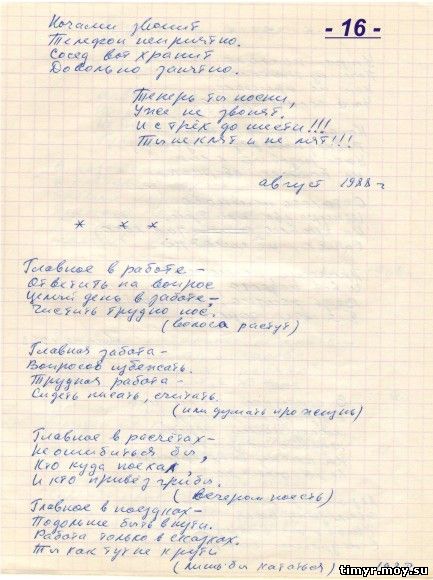 - 16 -
Ночами звонит
Телефон неприятно.
Сосед вот храпит
Довольно занятно.
Теперь ты поспи,
Уже не звонят.
И с трёх до шести!!!
Ты не клят и не мят!!!
август 1988 г
* * *
Главное в работе –
Ответить на вопрос
Целый день в заботе, –
Чистить трудно нос.
(волоса растут)
Главная забота –
Вопросов избежать.
Трудная работа –
Сидеть писать, считать.
(или думать про жизнь)
Главное в расчётах –
Не ошибиться бы,
Кто куда поехал,
И кто привёз грибы.
(вечером поесть)
Главное в поездках –
Подольше быть в пути.
Работа только в сказках.
Ты как тут не крути
(лишь бы кататься)
timyr.moy.su